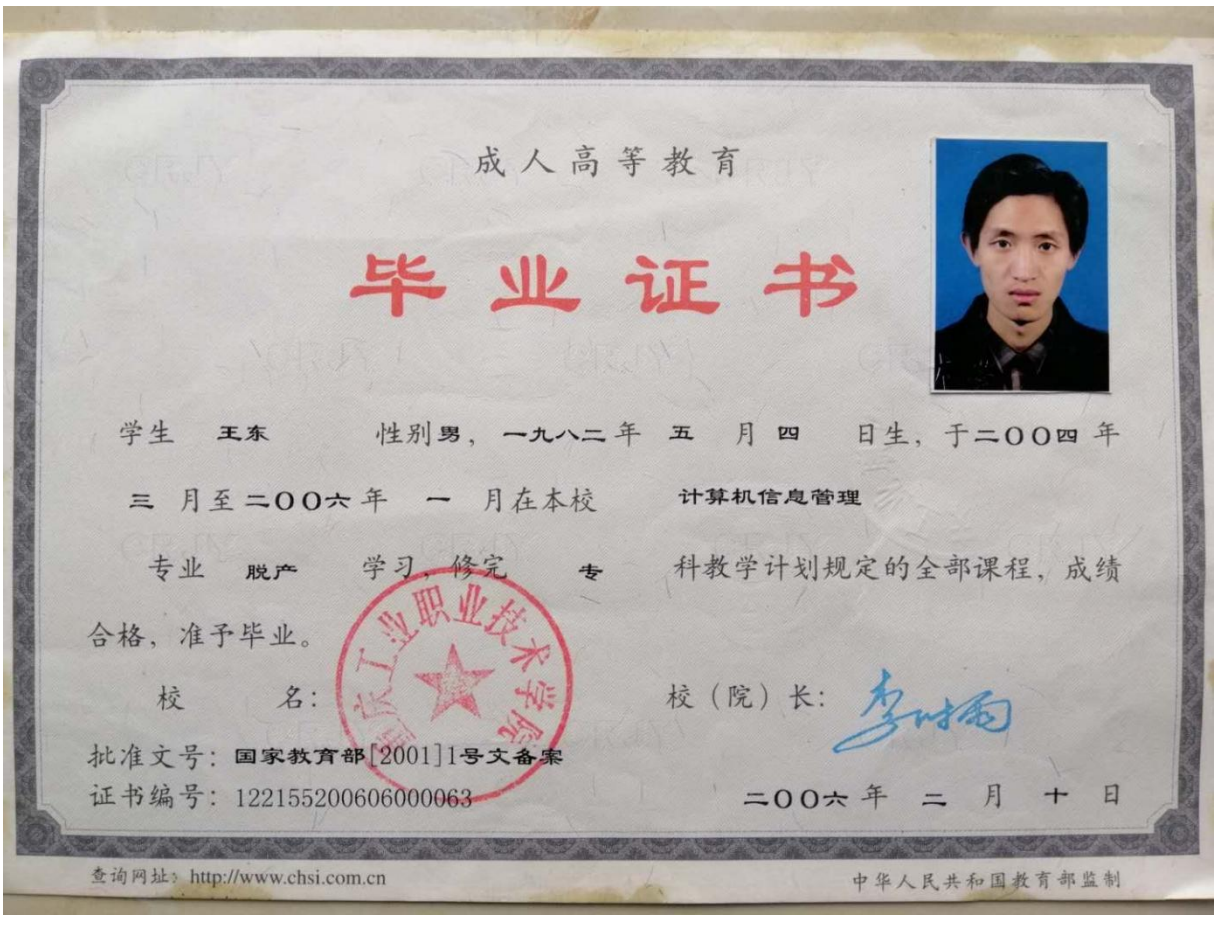 成人高等教育
毕业证书
学生 王东 性别男，一九八二年 五 月 四 日生，于二〇〇四年
三 月至二〇〇六年 一 月在本校 计算机信息管理
专业 脱产 学习，修完 专 科教学计划规定的全部课程，成绩
合格，准予毕业。
重庆工业职业技术学院
校 名： 校（院）长：
批准文号：国家教育部[2001]1号文备案
证书编号：122155200606000063 二〇〇六年 二 月 十 日
查询网址：http://www.chsi.com.cn 中华人民共和国教育部监制